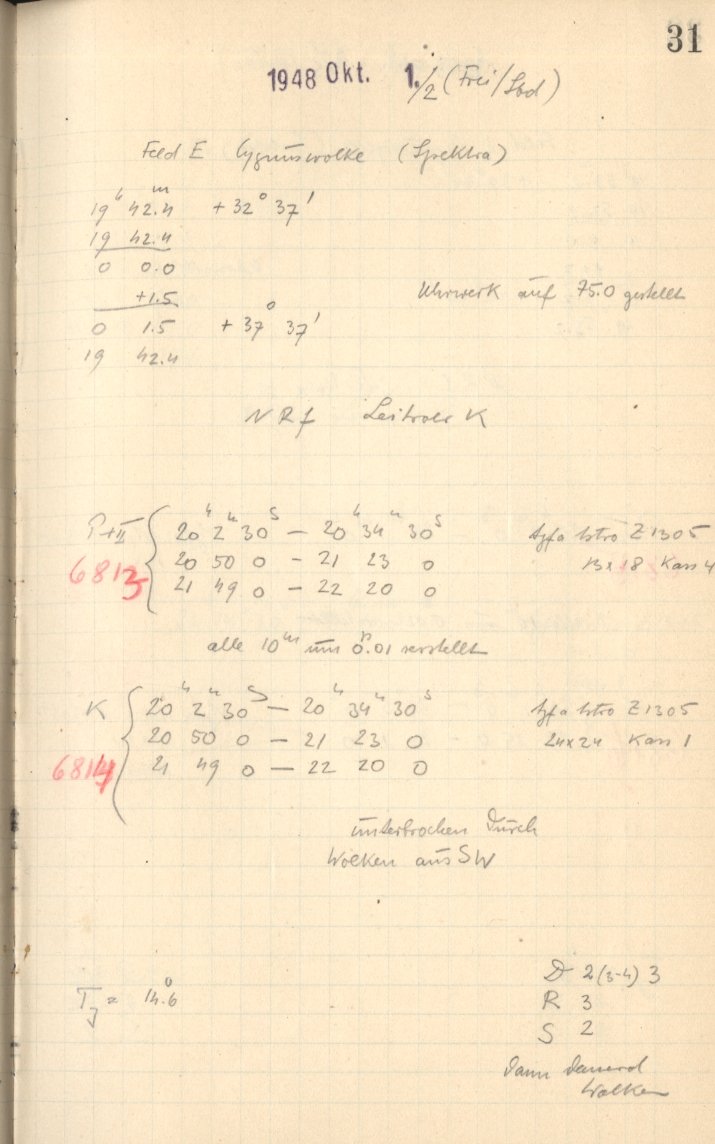 31
1948 Okt. 1./2 (Frei/Sbd)
Feld E Cygnuswolke (Spektra)
19ʰ 42.4ᵐ +32° 37'
19 42.4
0 0.0
+1.5
Uhrwerk auf 75.0 gestellt
0 1.5 +37° 37'
19 42.4
NRf Leitrohr K
P+II 20ʰ 2ᵐ 30ˢ — 20ʰ 34ᵐ 30ˢ Agfa Astro Z1305
6813 20 50 0 - 21 23 0 13x18 Kass 4
21 49 0 - 22 20 0
alle 10ᵐ um 0.01 verstellt
K 20ʰ 2ᵐ 30ˢ — 20ʰ 34ᵐ 30ˢ Agfa Astro Z1305
20 50 0 - 21 23 0 24x24 Kass 1
6814 21 49 0 — 22 20 0
unterbrochen durch
Wolken aus SW
D 2(3-4) 3
T = 14.6°
R 3
S 2
Dann dauernd
Wolken